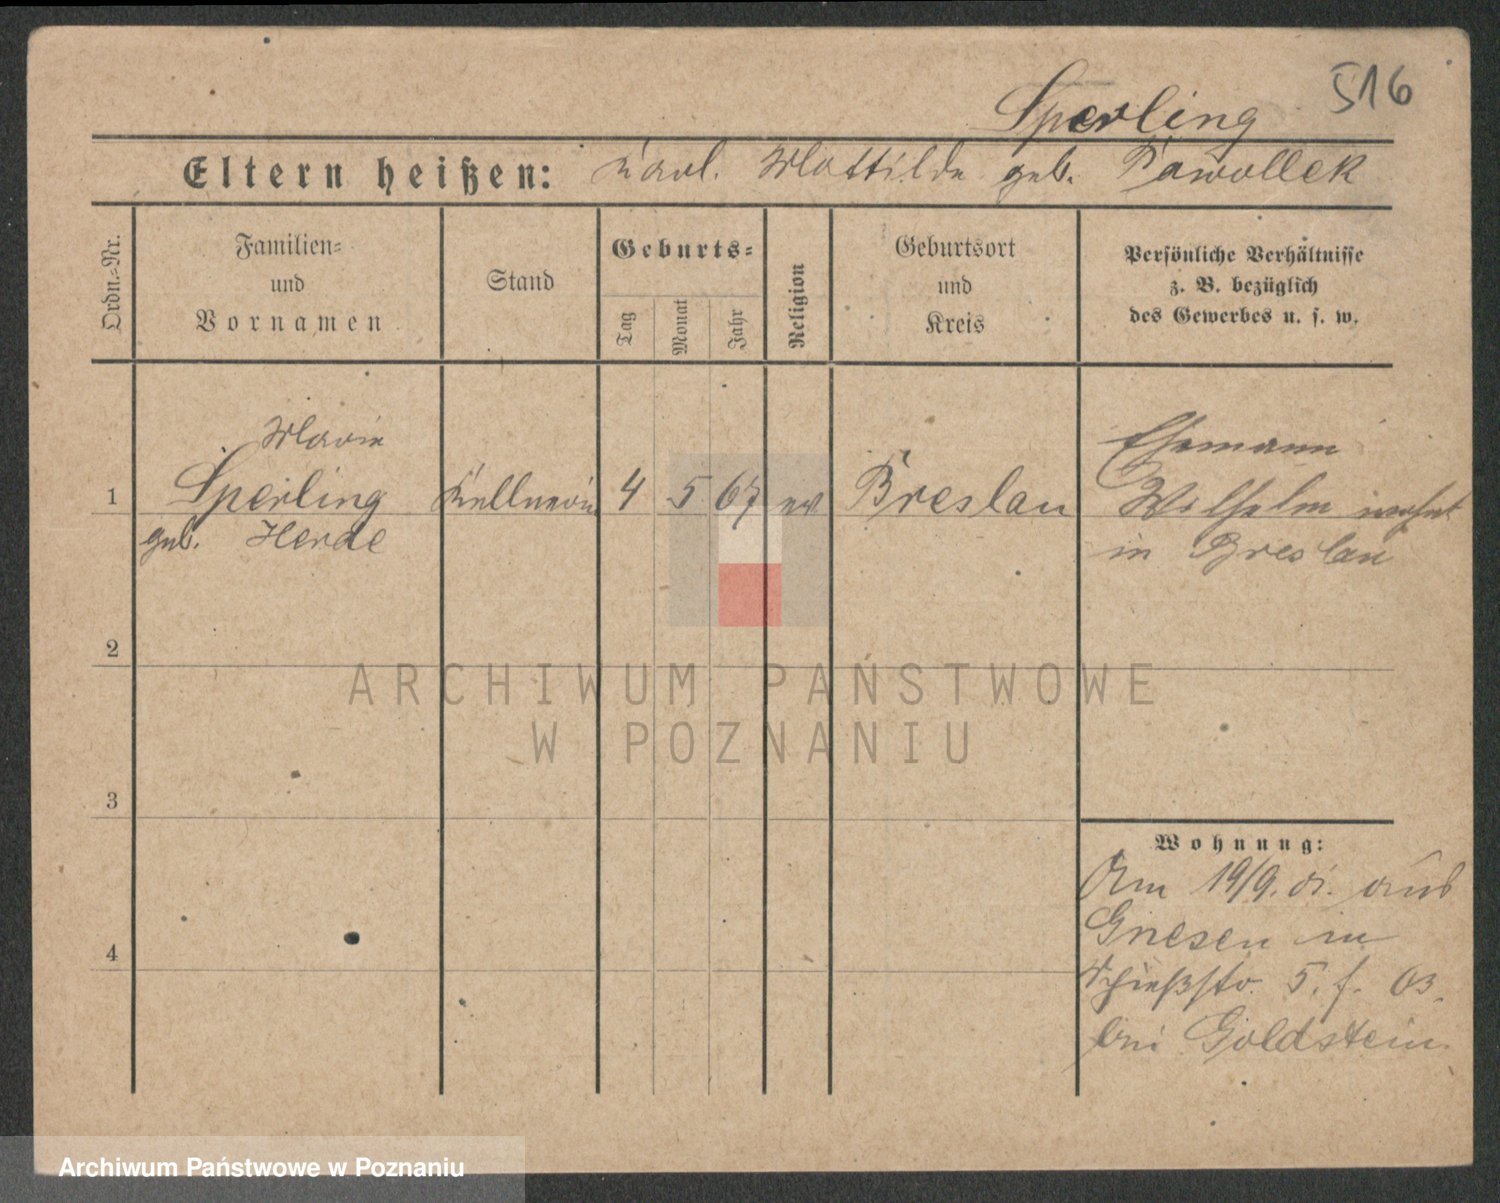 516
Sperling
Eltern heißen: Karl. Mattilde geb. Pawollek
Ordn.-Nr.
Familien-
und
Vornamen
Stand
Geburts-
Tag
Monat
Jahr
Religion
Geburtsort
und
Kreis
Persönliche Verhältnisse
z. B. bezüglich
des Gewerbes u. s. w.
Marie
1 Sperling Kellnerin 4 5 67 ev Breslau
geb. Herde
Ehemann
Wilhelm wohnt
in Breslau
2
3
4
Wohnung:
Am 19/9. aus
Gnesen in
Schießstr. 5. f. 03.
bei Goldstein.
ARCHIWUM PAŃSTWOWE
W POZNANIU
Archiwum Państwowe w Poznaniu